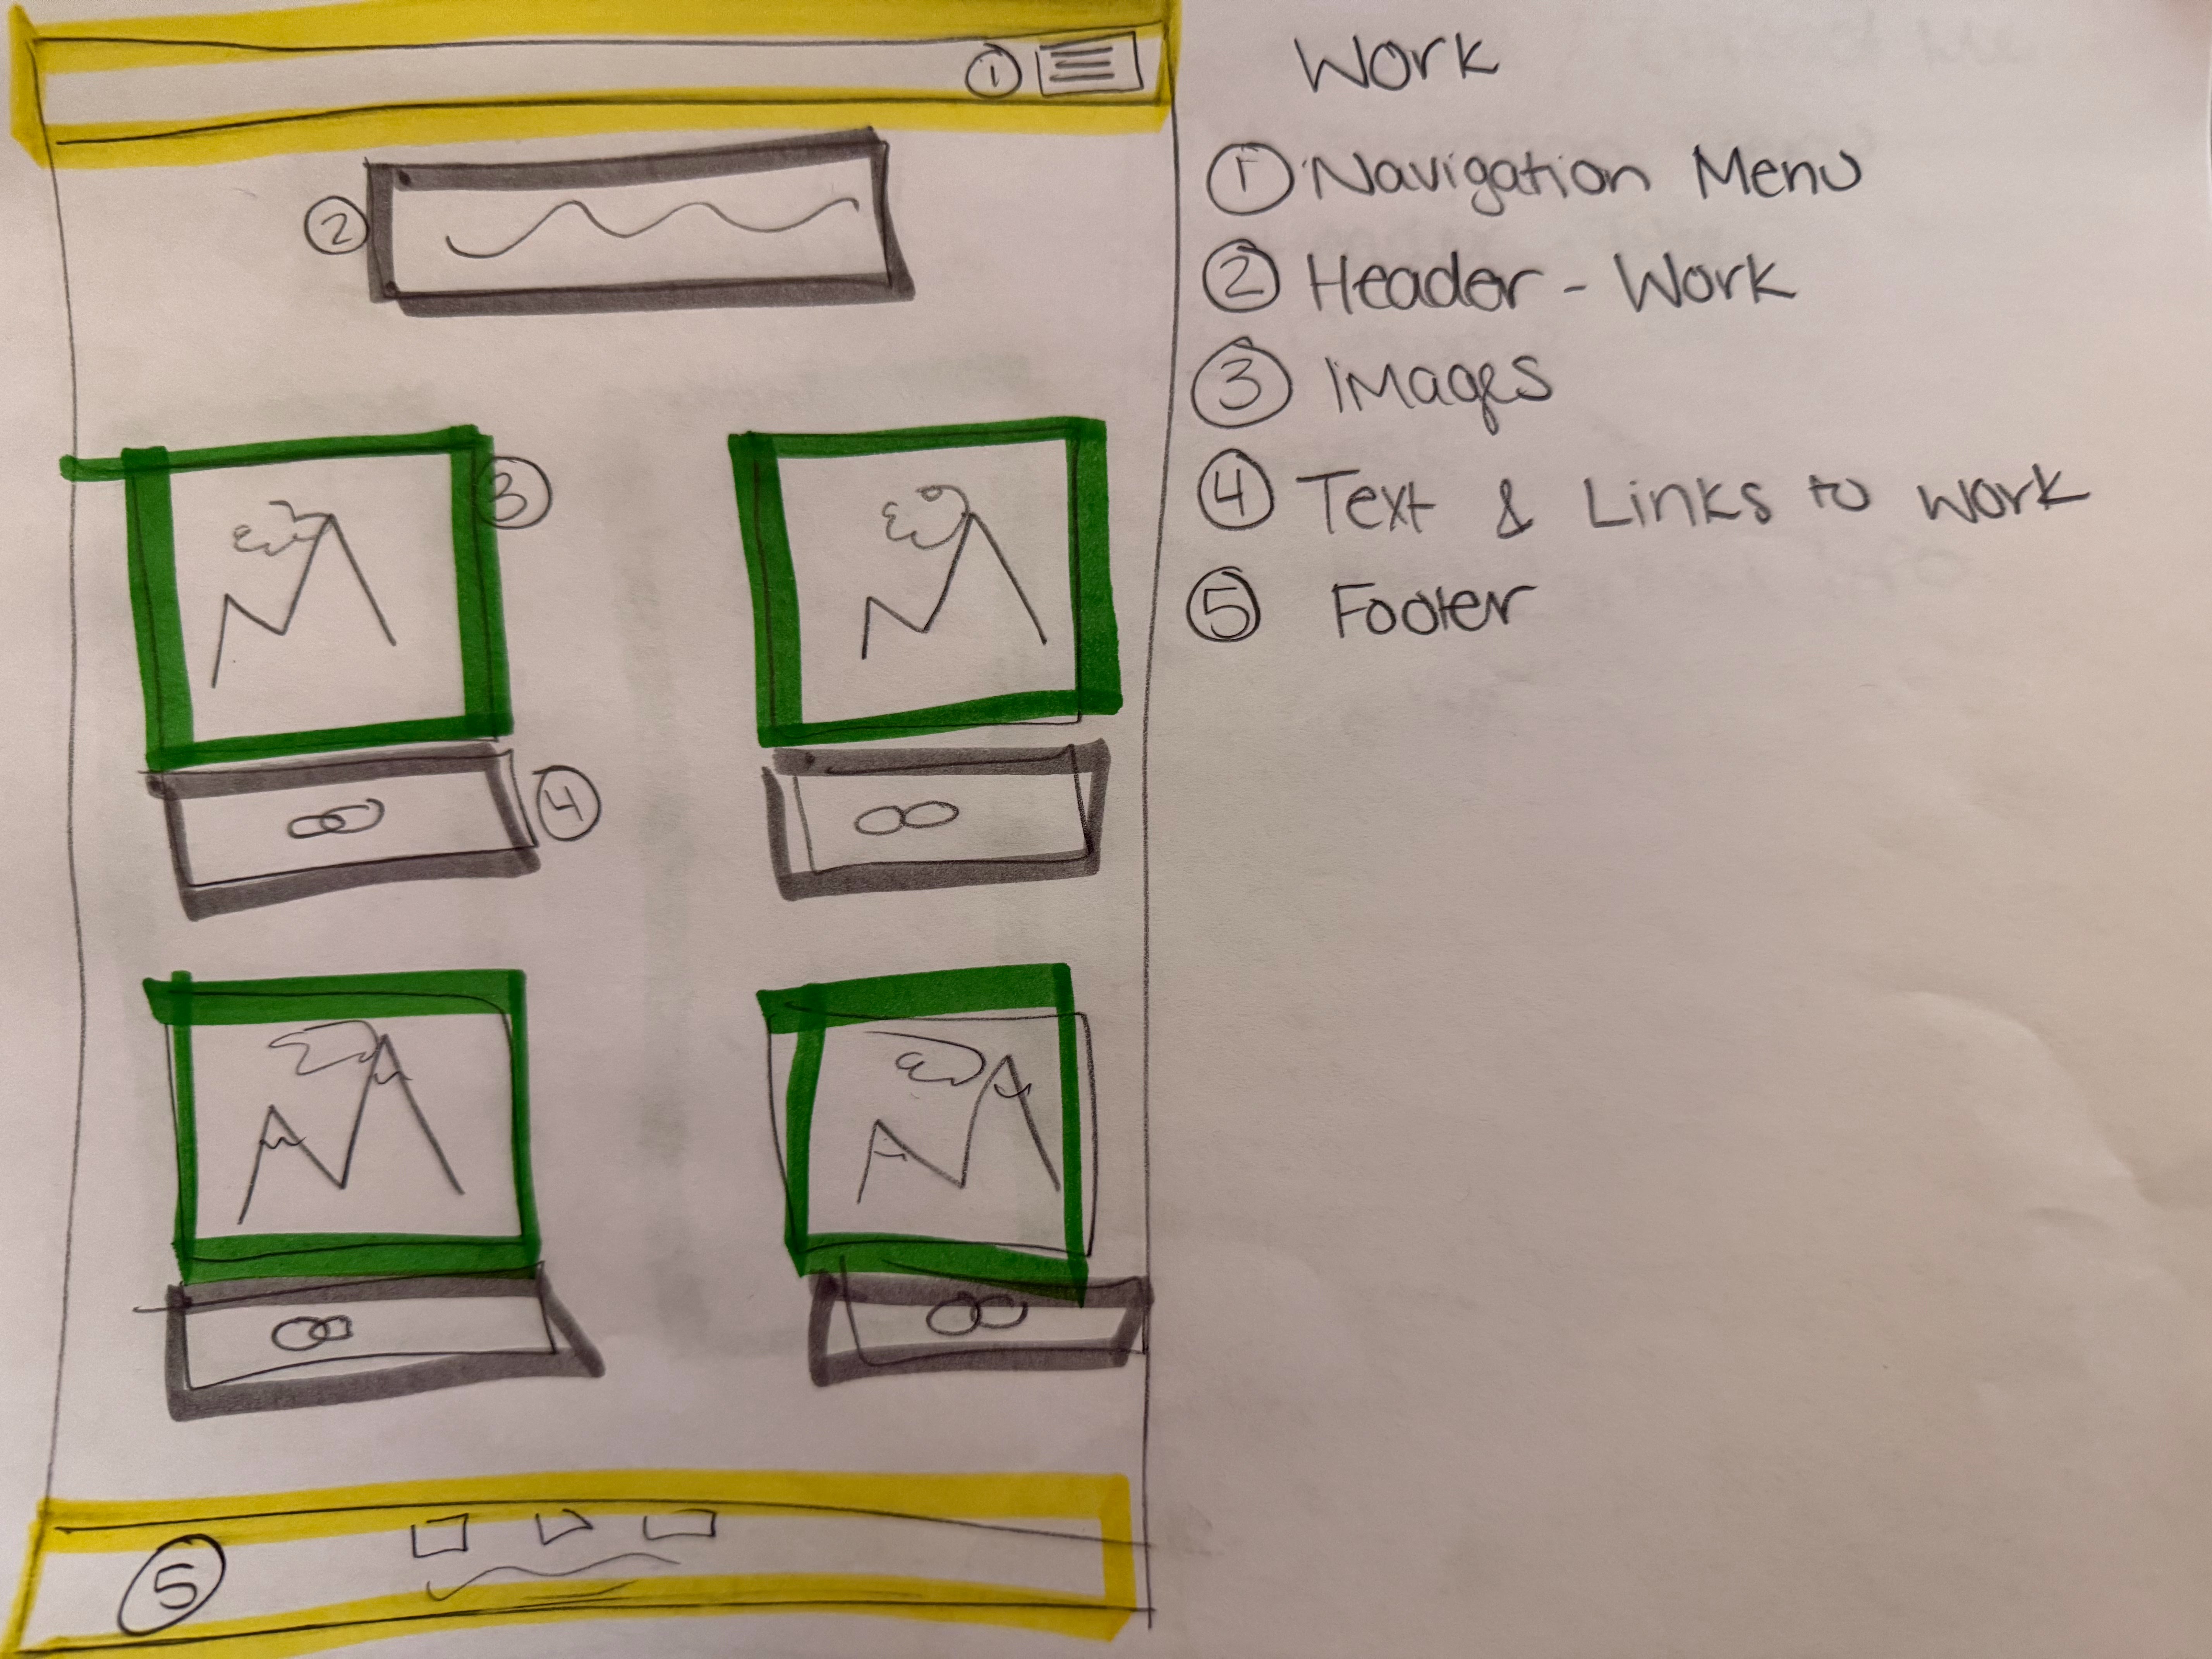 Work
① Navigation Menu
② Header - Work
③ Images
④ Text & Links to work
⑤ Footer
①
②
③
④
⑤